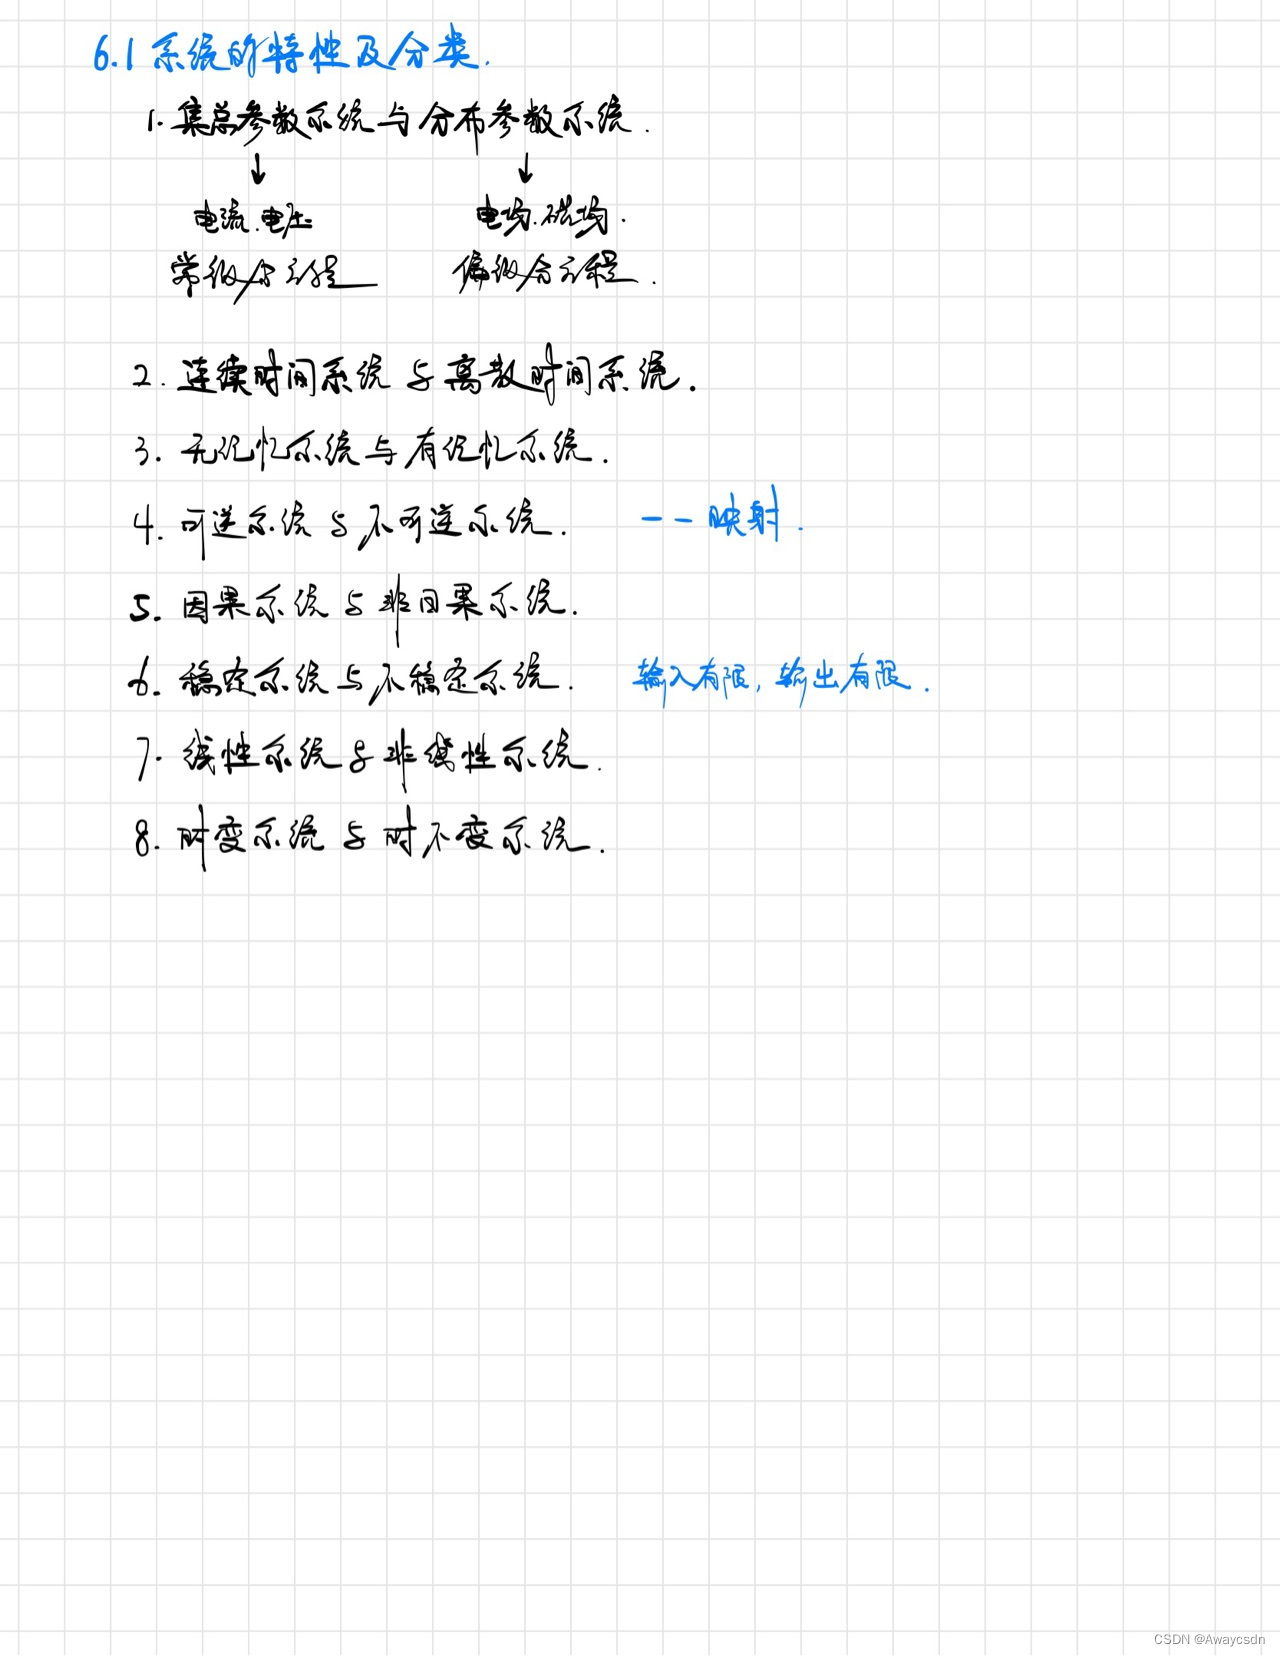 6.1 系统的特性及分类.
1. 集总参数系统与分布参数系统.
↓ ↓
电流.电压 电场.磁场.
常微分方程 偏微分方程.
2. 连续时间系统与离散时间系统.
3. 无记忆系统与有记忆系统.
4. 可逆系统与不可逆系统. 一一映射.
5. 因果系统与非因果系统.
6. 稳定系统与不稳定系统. 输入有限, 输出有限.
7. 线性系统与非线性系统.
8. 时变系统与时不变系统.
CSDN @Awaycsdn